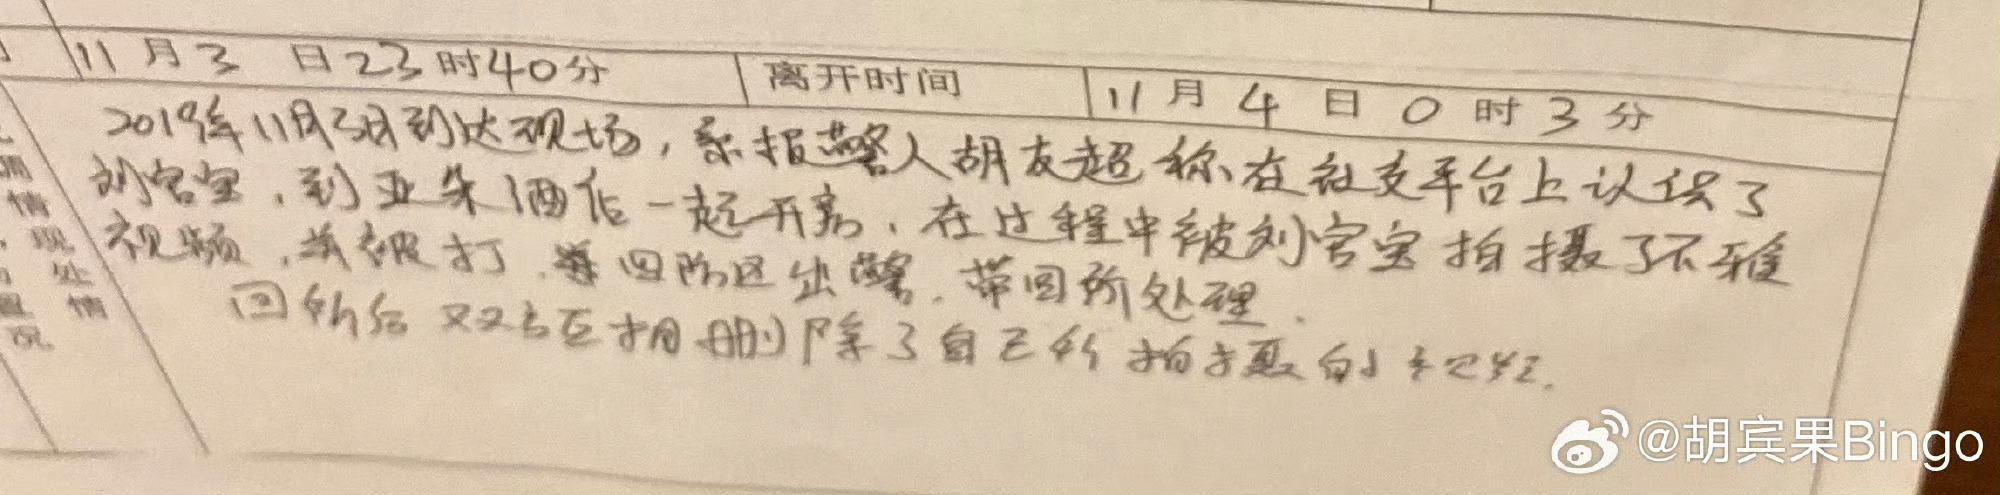 11月3日23时40分 离开时间 11月4日0时3分
2019年11月3日到达现场，系报警人胡友超称在社交平台上认识了
刘宫宝，到亚朱酒店一起开房，在过程中被刘宫宝拍摄了不雅
视频，并被打，四防区出警，带回所处理．
回所后双方互相删除了自己所拍摄的
情
现
处
情
况
@胡宾果Bingo